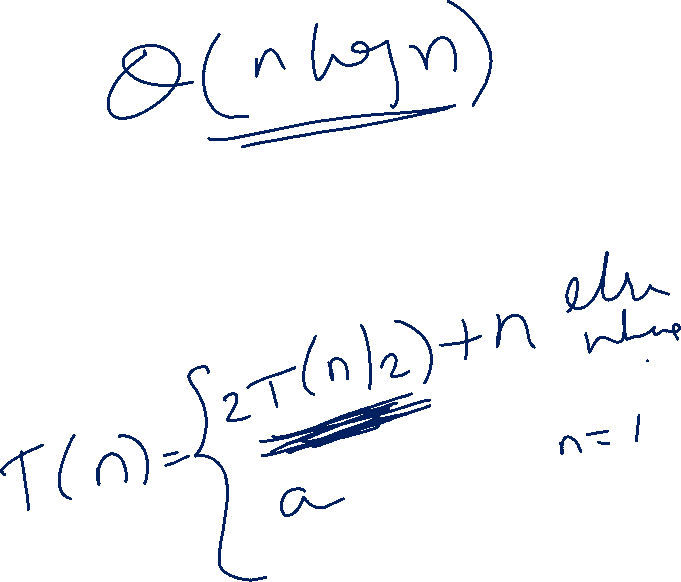 θ(n log n)
T(n) = { 2T(n/2) + n else where
a n = 1